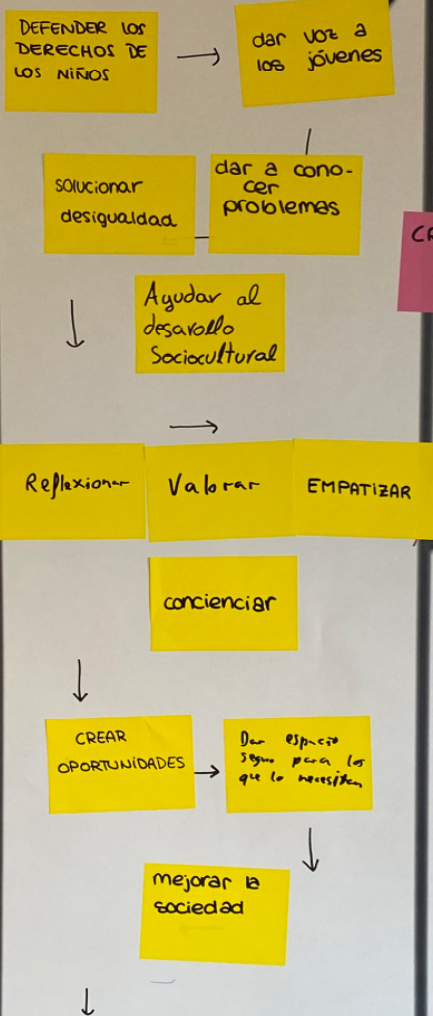 DEFENDER LOS
DERECHOS DE
LOS NIÑOS
dar voz a
los jóvenes
solucionar
desigualdad
dar a cono-
cer
problemas
CR
Ayudar al
desarollo
Sociocultural
Reflexionar
Valorar
EMPATIZAR
concienciar
CREAR
OPORTUNIDADES
Dar espacio
seguro para los
que lo necesiten
mejorar la
sociedad